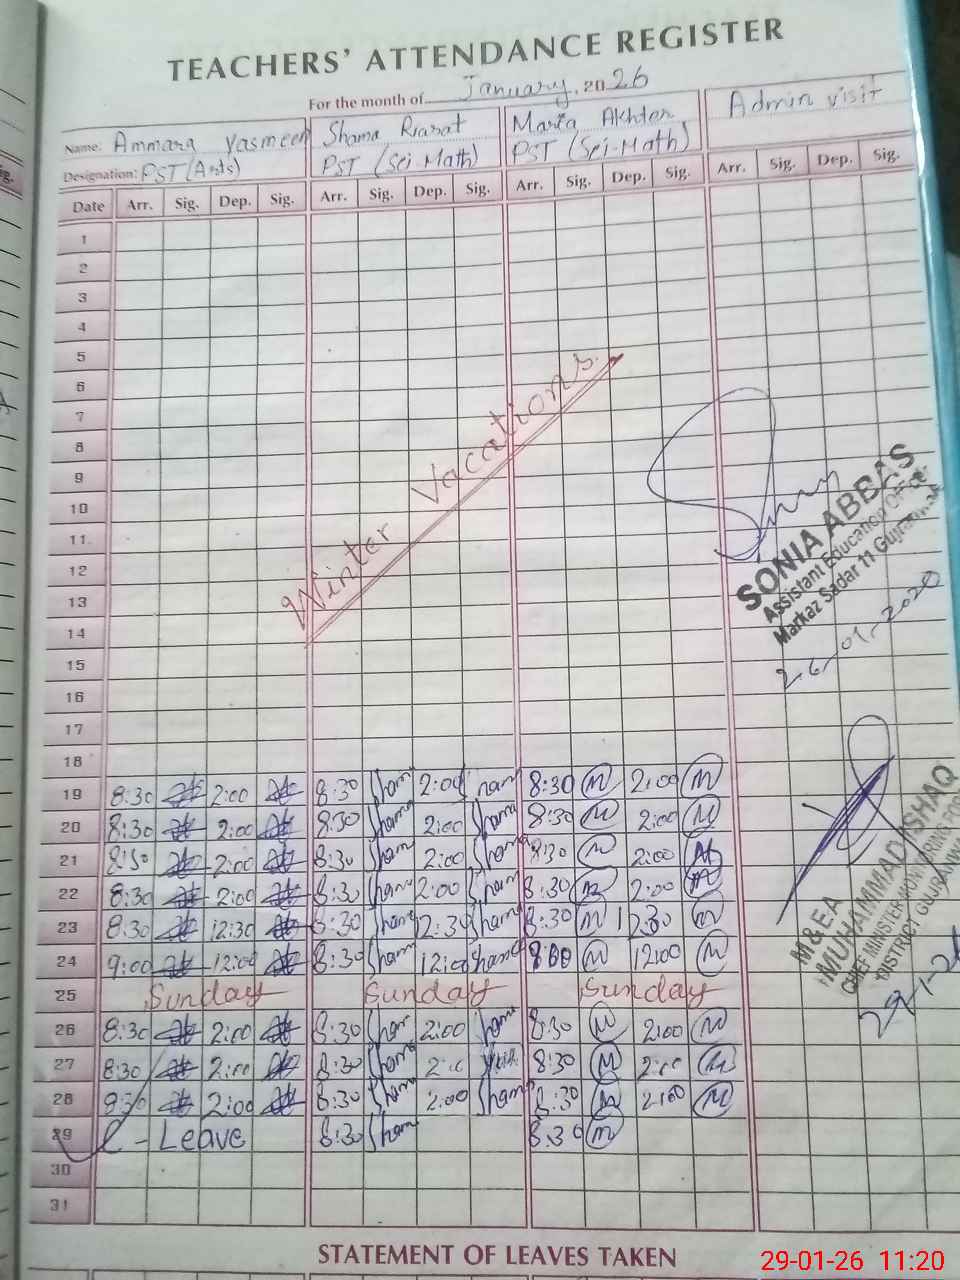 TEACHERS' ATTENDANCE REGISTER
For the month of January, 2026
Name: Ammara Yasmeen Shama Riasat Maria Akhter Admin visit
Designation: PST (Arts) PST (Sci-Math) PST (Sci-Math)
Date Arr. Sig. Dep. Sig. Arr. Sig. Dep. Sig. Arr. Sig. Dep. Sig. Arr. Sig. Dep. Sig.
1
2
3
4
5
6
7
8
9
10
11
12
13
14
15
16
17
18
Winter Vacations.
SONIA ABBAS
Assistant Education Officer
Markaz Sadar 11
19 8:30 2:00 8:30 Sham 2:00 Sham 8:30 M 2:00 M
20 8:30 2:00 8:30 Shama 2:00 Shama 8:30 M 2:00 M
21 8:30 2:00 8:30 Sham 2:00 Shama 8:30 M 2:00 M
22 8:30 2:00 8:30 Sham 2:00 Sham 8:30 M 2:00 M
23 8:30 12:30 8:30 Sham 12:30 Sham 8:30 M 12:30 M
24 9:00 12:00 8:30 Sham 12:00 Sham M 12:00 M
25 Sunday Sunday Sunday
26 8:30 2:00 8:30 Sham 2:00 Sham 8:30 M 2:00 M
27 8:30 2:00 8:30 Sham 2:00 8:30 M 2:00 M
28 8:30 2:00 8:30 Sham 2:00 Sham 8:30 M 2:00 M
29 - Leave 8:30 Sham 8:30 M
30
31
M&EA
MUHAMMAD ISHAQ
CHIEF MINISTER MONITORING FOR
DISTRICT
STATEMENT OF LEAVES TAKEN
29-01-26 11:20